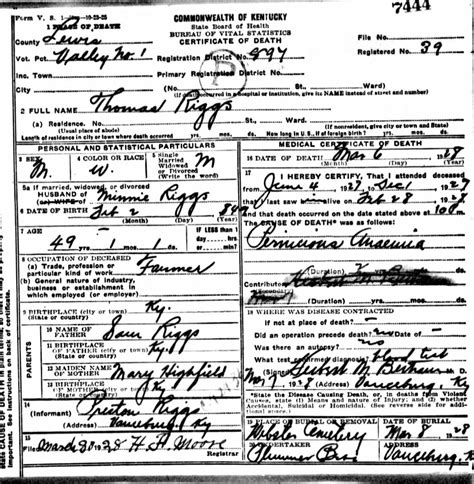 7444
Form V. S. 1
COMMONWEALTH OF KENTUCKY
1 PLACE OF DEATH
State Board of Health
BUREAU OF VITAL STATISTICS
CERTIFICATE OF DEATH
File No.
County Lewis
Vot. Pct. Valley No. 1
Registration District No. 897
Registered No. 39
Inc. Town
Primary Registration District No.
City (No. St., Ward)
(If death occurred in a hospital or institution, give its NAME instead of street and number)
2 FULL NAME Thomas Riggs
(a) Residence. No. St., Ward
(Usual place of abode) (If nonresident, give city or town and State)
Length of residence in city or town where death occurred yrs. mos. ds. How long in U. S., if of foreign birth? yrs. mos. ds.
PERSONAL AND STATISTICAL PARTICULARS
MEDICAL CERTIFICATE OF DEATH
3 SEX M.
4 COLOR OR RACE W.
5 Single Married Widowed or Divorced (Write the word) M
16 DATE OF DEATH Mar 6 1928
(Month) (Day) (Year)
5a If married, widowed, or divorced
HUSBAND of Minnie Riggs
(or) WIFE of
17 I HEREBY CERTIFY, That I attended deceased
from June 4 1927, to Dec 1 1927
that I last saw alive on Feb 28 1928
6 DATE OF BIRTH Feb 2
(Month) (Day) (Year)
and that death occurred on the date stated above at m.
The CAUSE OF DEATH was as follows:
Pernicious Anaemia
7 AGE 49 1 1 ds.
IF LESS than 1 day
8 OCCUPATION OF DECEASED
(a) Trade, profession or particular kind of work Farmer
(b) General nature of industry, business or establishment in which employed (or employer)
(Duration) yrs. mos. ds.
Contributory
(Duration) yrs. mos. ds.
9 BIRTHPLACE (city or town) Ky.
(State or country)
18 WHERE WAS DISEASE CONTRACTED
if not at place of death?
Did an operation precede death? no
Was there an autopsy? no
What test confirmed diagnosis? blood test
PARENTS
10 NAME OF FATHER Sam Riggs
11 BIRTHPLACE OF FATHER (city or town) Ky.
(State or country)
12 MAIDEN NAME OF MOTHER Mary Highfield
13 BIRTHPLACE OF MOTHER (city or town) Ky
(State or country)
M. D.
Mar 7, 1928 Vanceburg, Ky
*State the Disease Causing Death, or, in deaths from Violent Causes, state (1) Means and nature of Injury; and (2) whether Accidental, Suicidal or Homicidal. (See reverse side for additional space)
14
(Informant) Preston Riggs
(Address) Vanceburg, Ky
19 PLACE OF BURIAL OR REMOVAL
DATE OF BURIAL
Webster Cemetery Mar 8 1928
15
March 30 1928 H. A. Moore
20 UNDERTAKER
Plummer Bros
Vanceburg, Ky